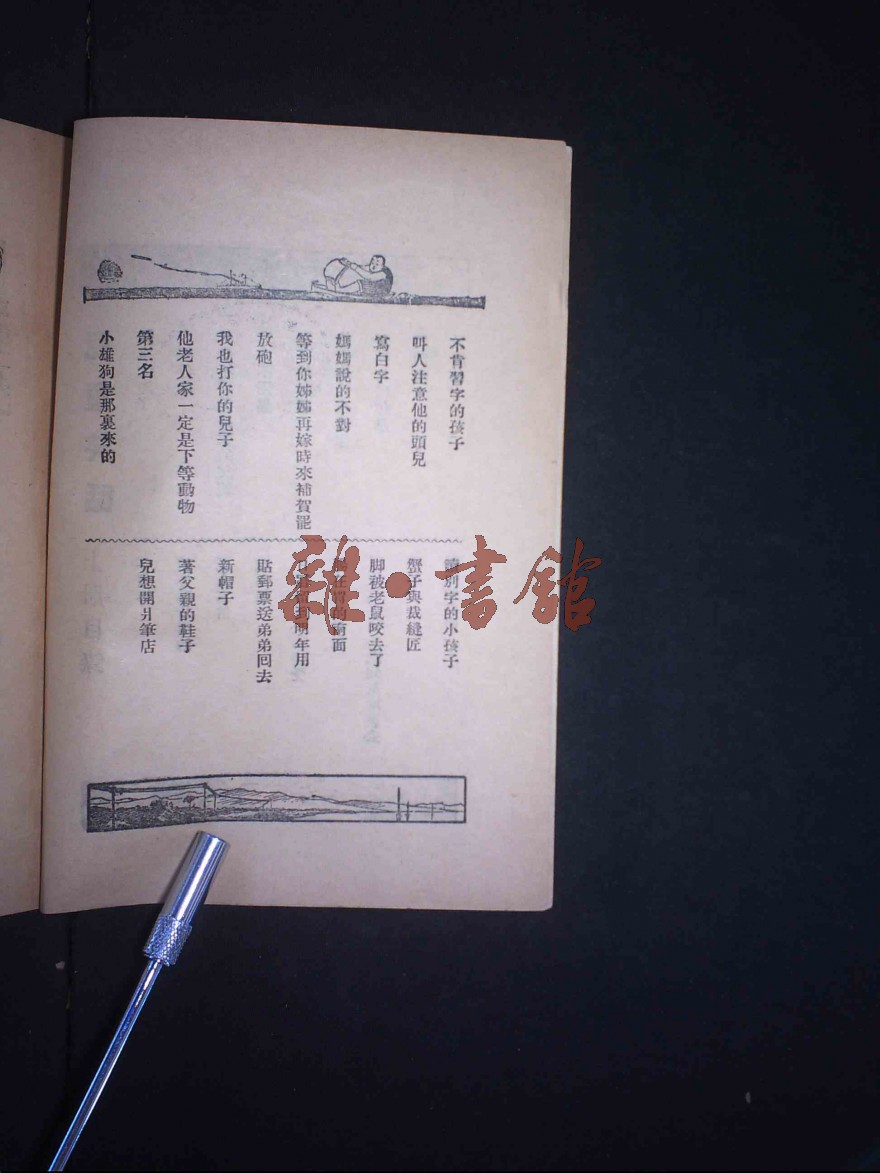 不肯習字的孩子
叫人注意他的頭兒
寫白字
媽媽說的不對
等到你姊姊再嫁時來補賀罷
放砲
我也打你的兒子
他老人家一定是下等動物
第三名
小雄狗是那裏來的
讀別字的小孩子
蟹子與裁縫匠
脚被老鼠咬去了
面
明年用
貼郵票送弟弟回去
新帽子
著父親的鞋子
兒想開爿筆店
雜·書館